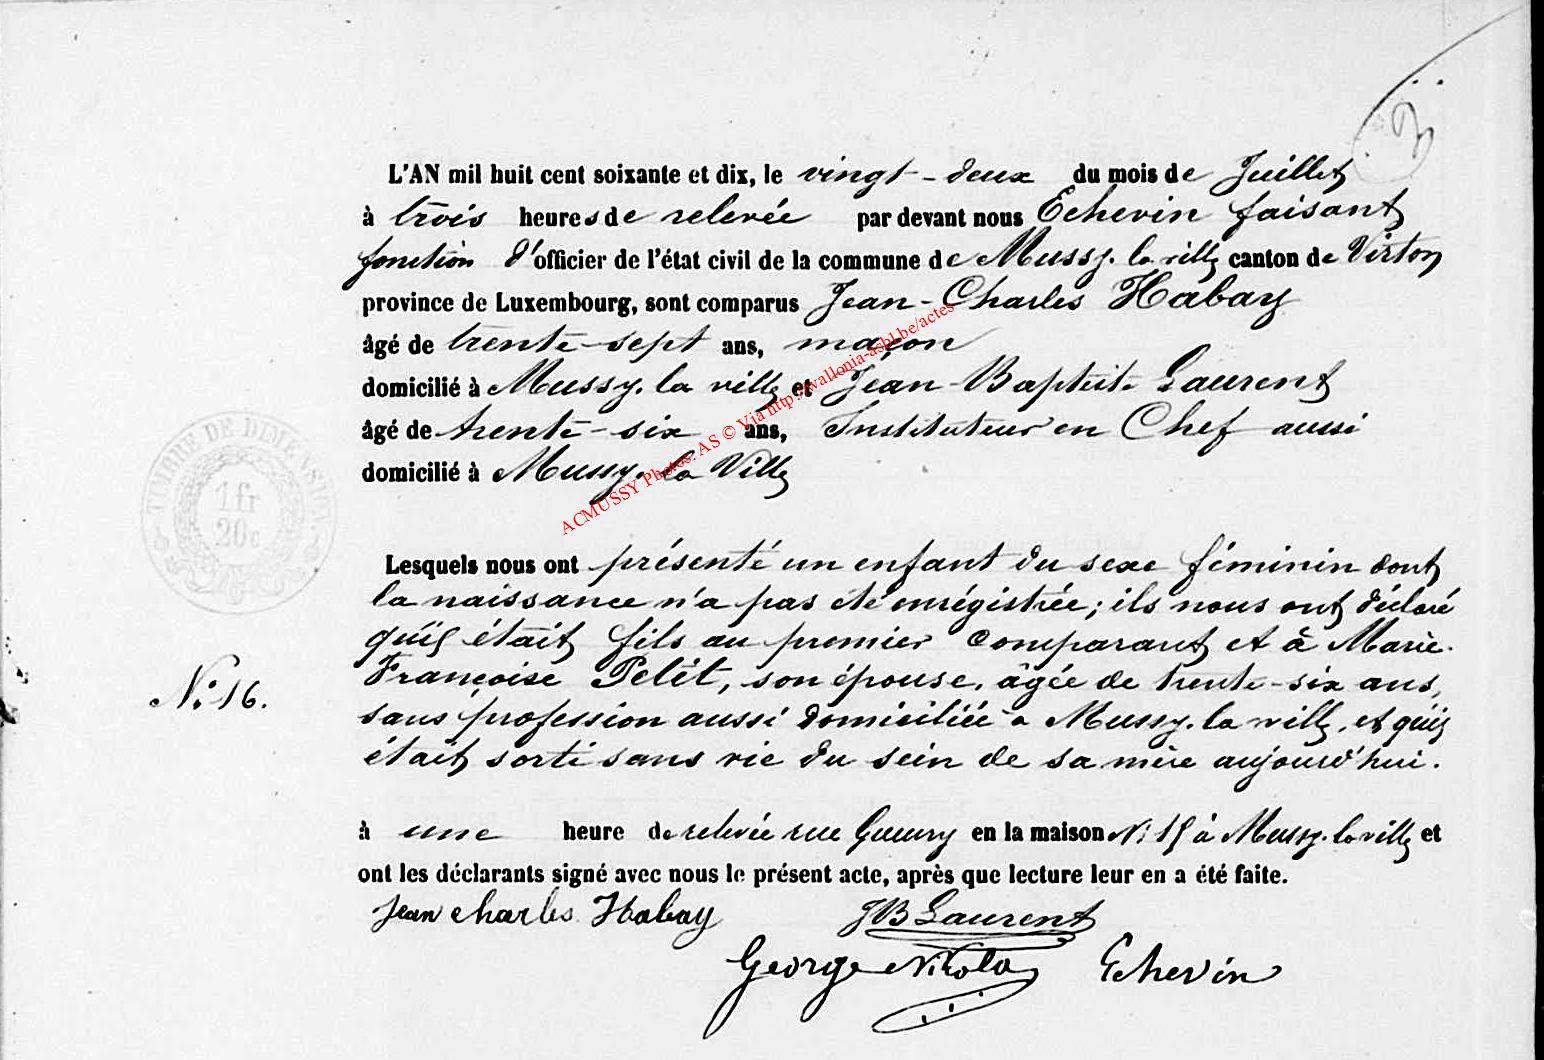 L'AN mil huit cent soixante et dix, le vingt-deux du mois de Juillet
à trois heures de relevée par devant nous Echevin faisant
fonction d'officier de l'état civil de la commune de Mussy-la-ville canton de Virton
province de Luxembourg, sont comparus Jean-Charles Habay
âgé de trente-sept ans, maçon
domicilié à Mussy-la ville et Jean-Baptiste Laurent
âgé de trente-six ans, Instituteur en Chef aussi
domicilié à Mussy-la Ville
ACMUSSY Photos: AS © Via http://wallonia-asbl.be/actes
TIMBRE DE DIMENSION
1 fr
20 c
Lesquels nous ont présenté un enfant du sexe féminin dont
la naissance n'a pas été enrégistrée; ils nous ont déclaré
qu'il était fils au premier comparant et à Marie-
Françoise Petit, son épouse, âgée de trente-six ans,
N° 16.
sans profession aussi domiciliée à Mussy-la ville, et qu'il
était sorti sans vie du sein de sa mère aujourd'hui.
à une heure de relevée rue en la maison N° à Mussy-la ville et
ont les déclarants signé avec nous le présent acte, après que lecture leur en a été faite.
Jean charles Habay JB Laurent
George Nicolas Echevin